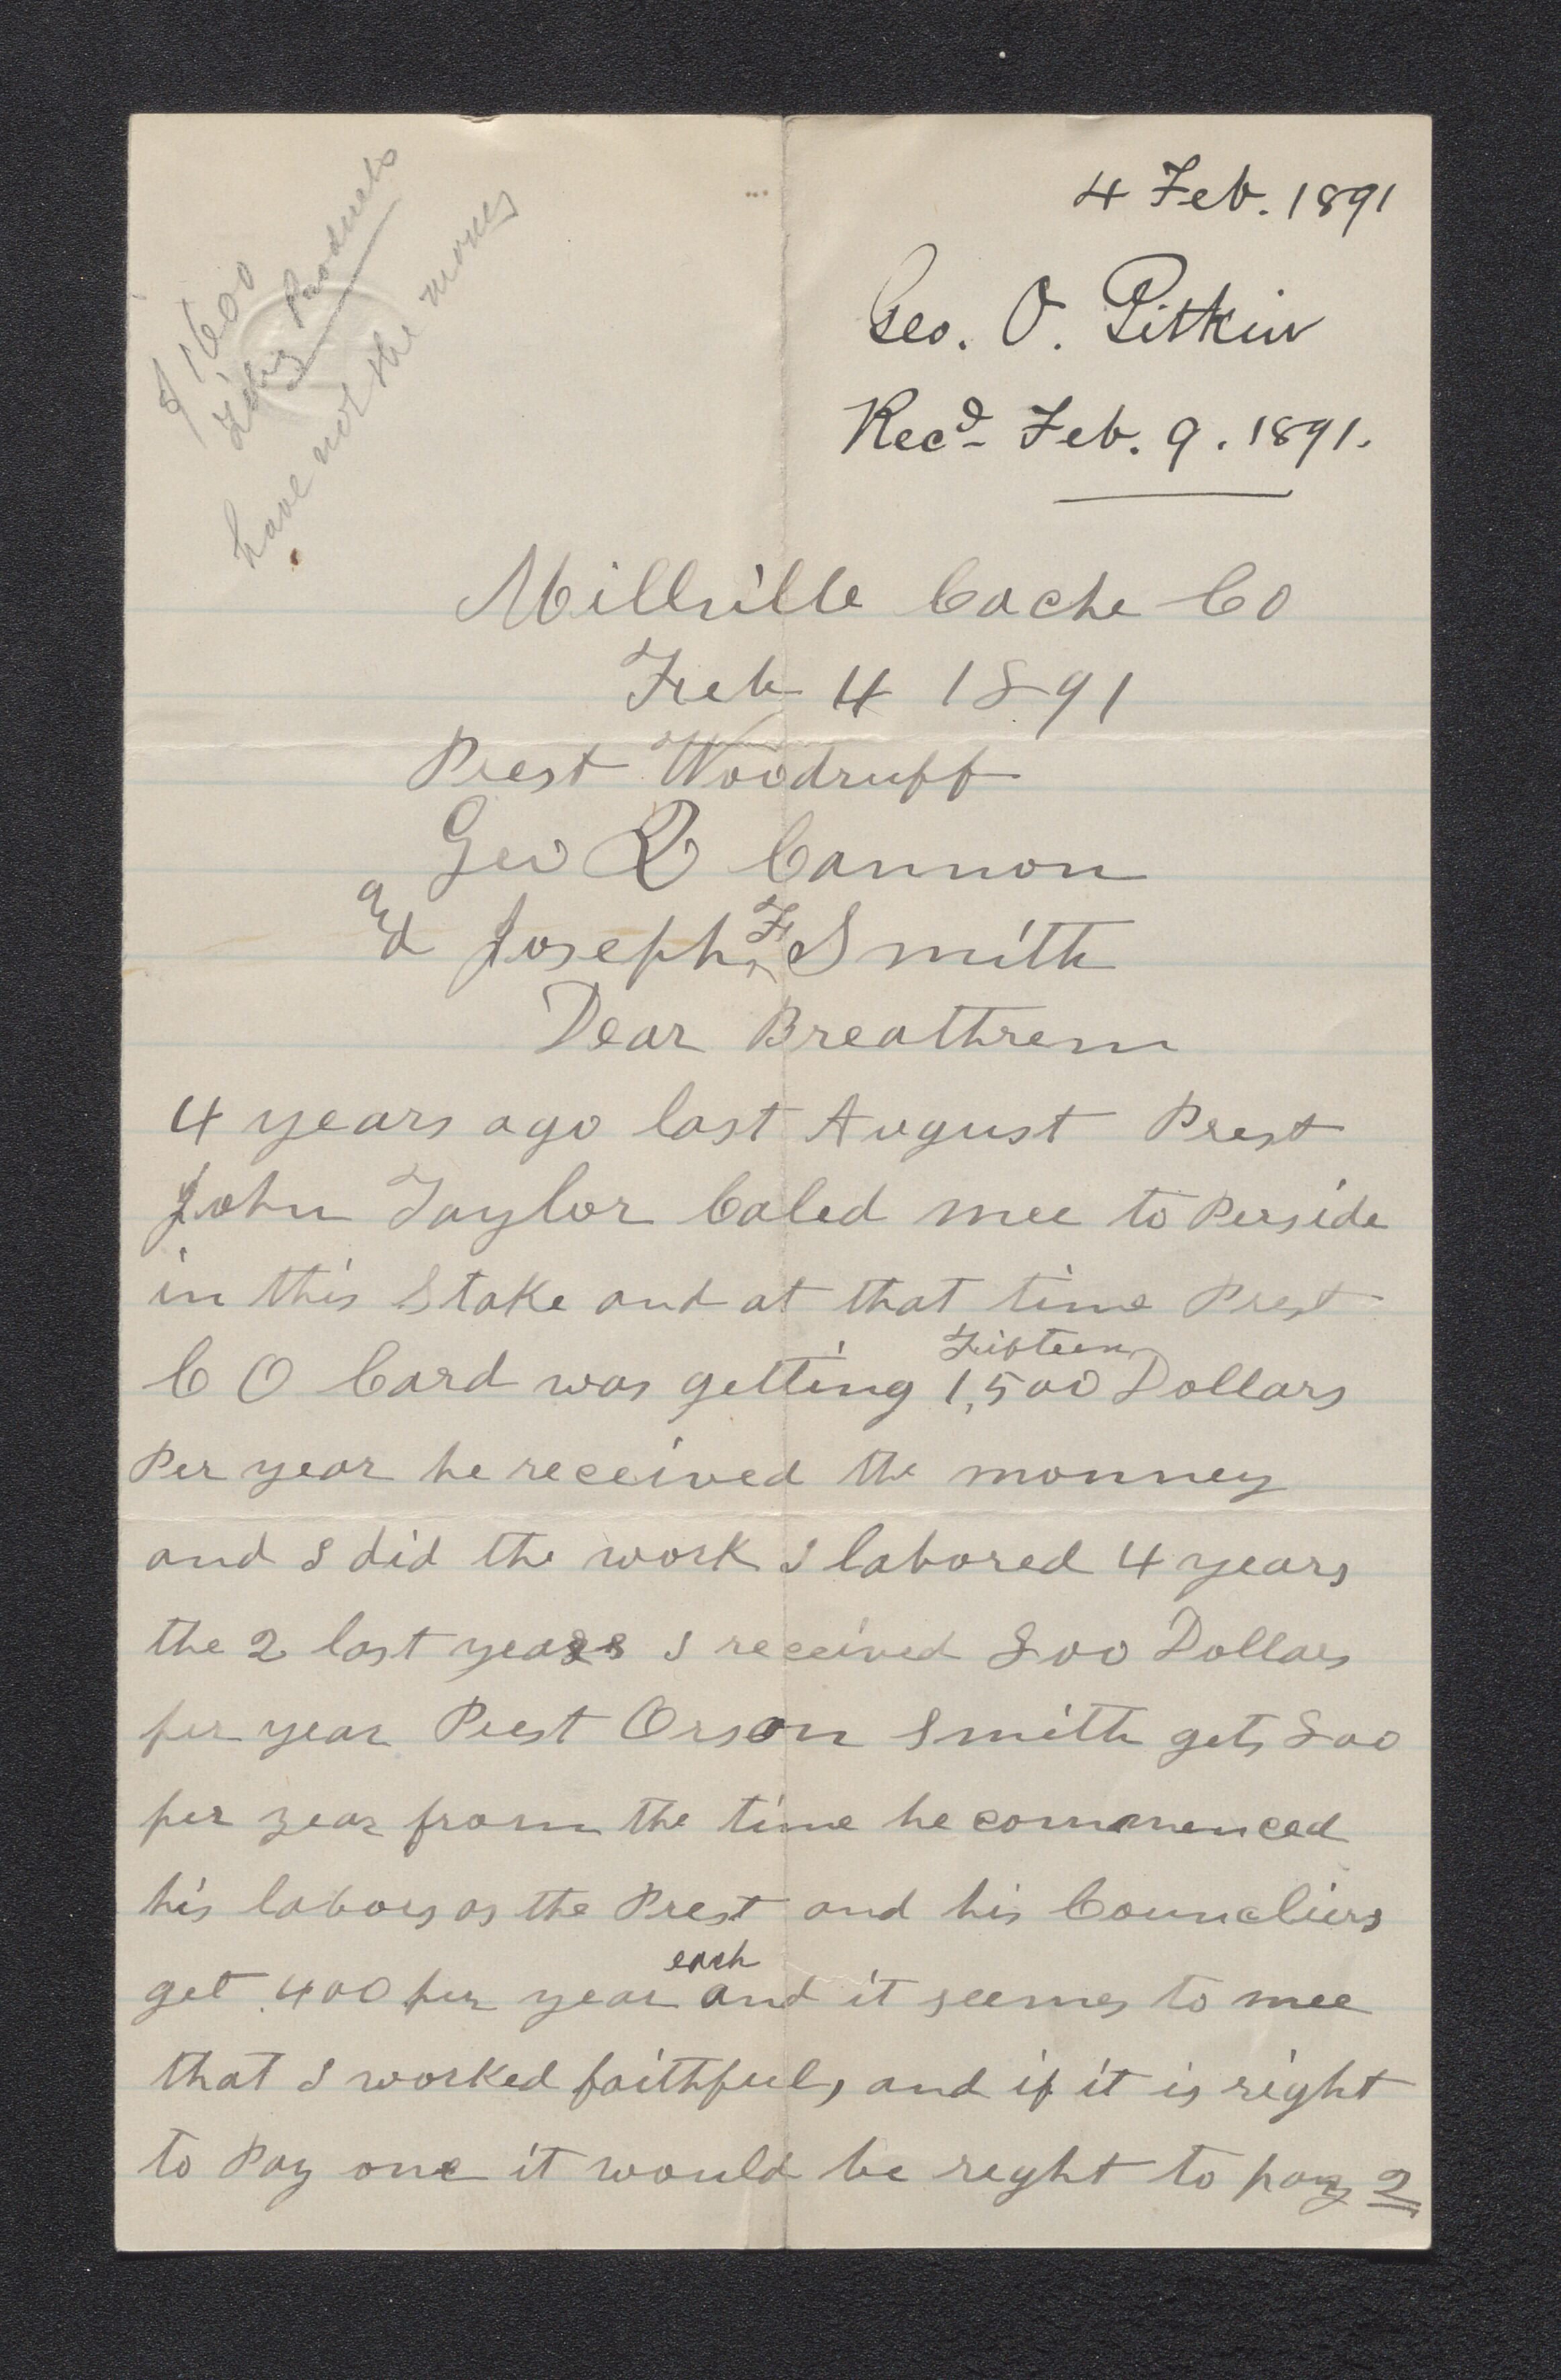 $1600
Tithing Products
have not the money
4 Feb. 1891
Geo. O. Pitkin
Recd- Feb. 9. 1891.
Millville Cache Co
Feb 4 1891
Prest Woodruff
Geo Q Cannon
and Joseph F Smith
Dear Breathrem
4 years ago last August Prest
John Taylor Caled mee to Perside
in this Stake and at that time Prest
C O Card was getting Fifteen 1,500 Dollars
Per year he received the monney
and I did the work I labored 4 years
the 2 last years I received 800 Dollars
per year Prest Orson Smith gets 800
per year from the time he commenced
his labors as the Prest and his Councliers
get 400 per year each and it seemes to mee
that I worked faithful, and if it is right
to Pay one it would be reght to pay 2